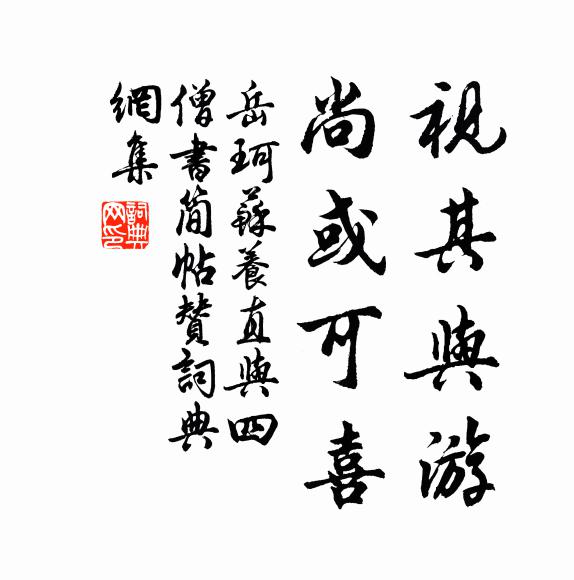 視其與游
尚或可喜
岳珂蘇養直與四
僧書簡帖贊詞典
網集
詞典網印